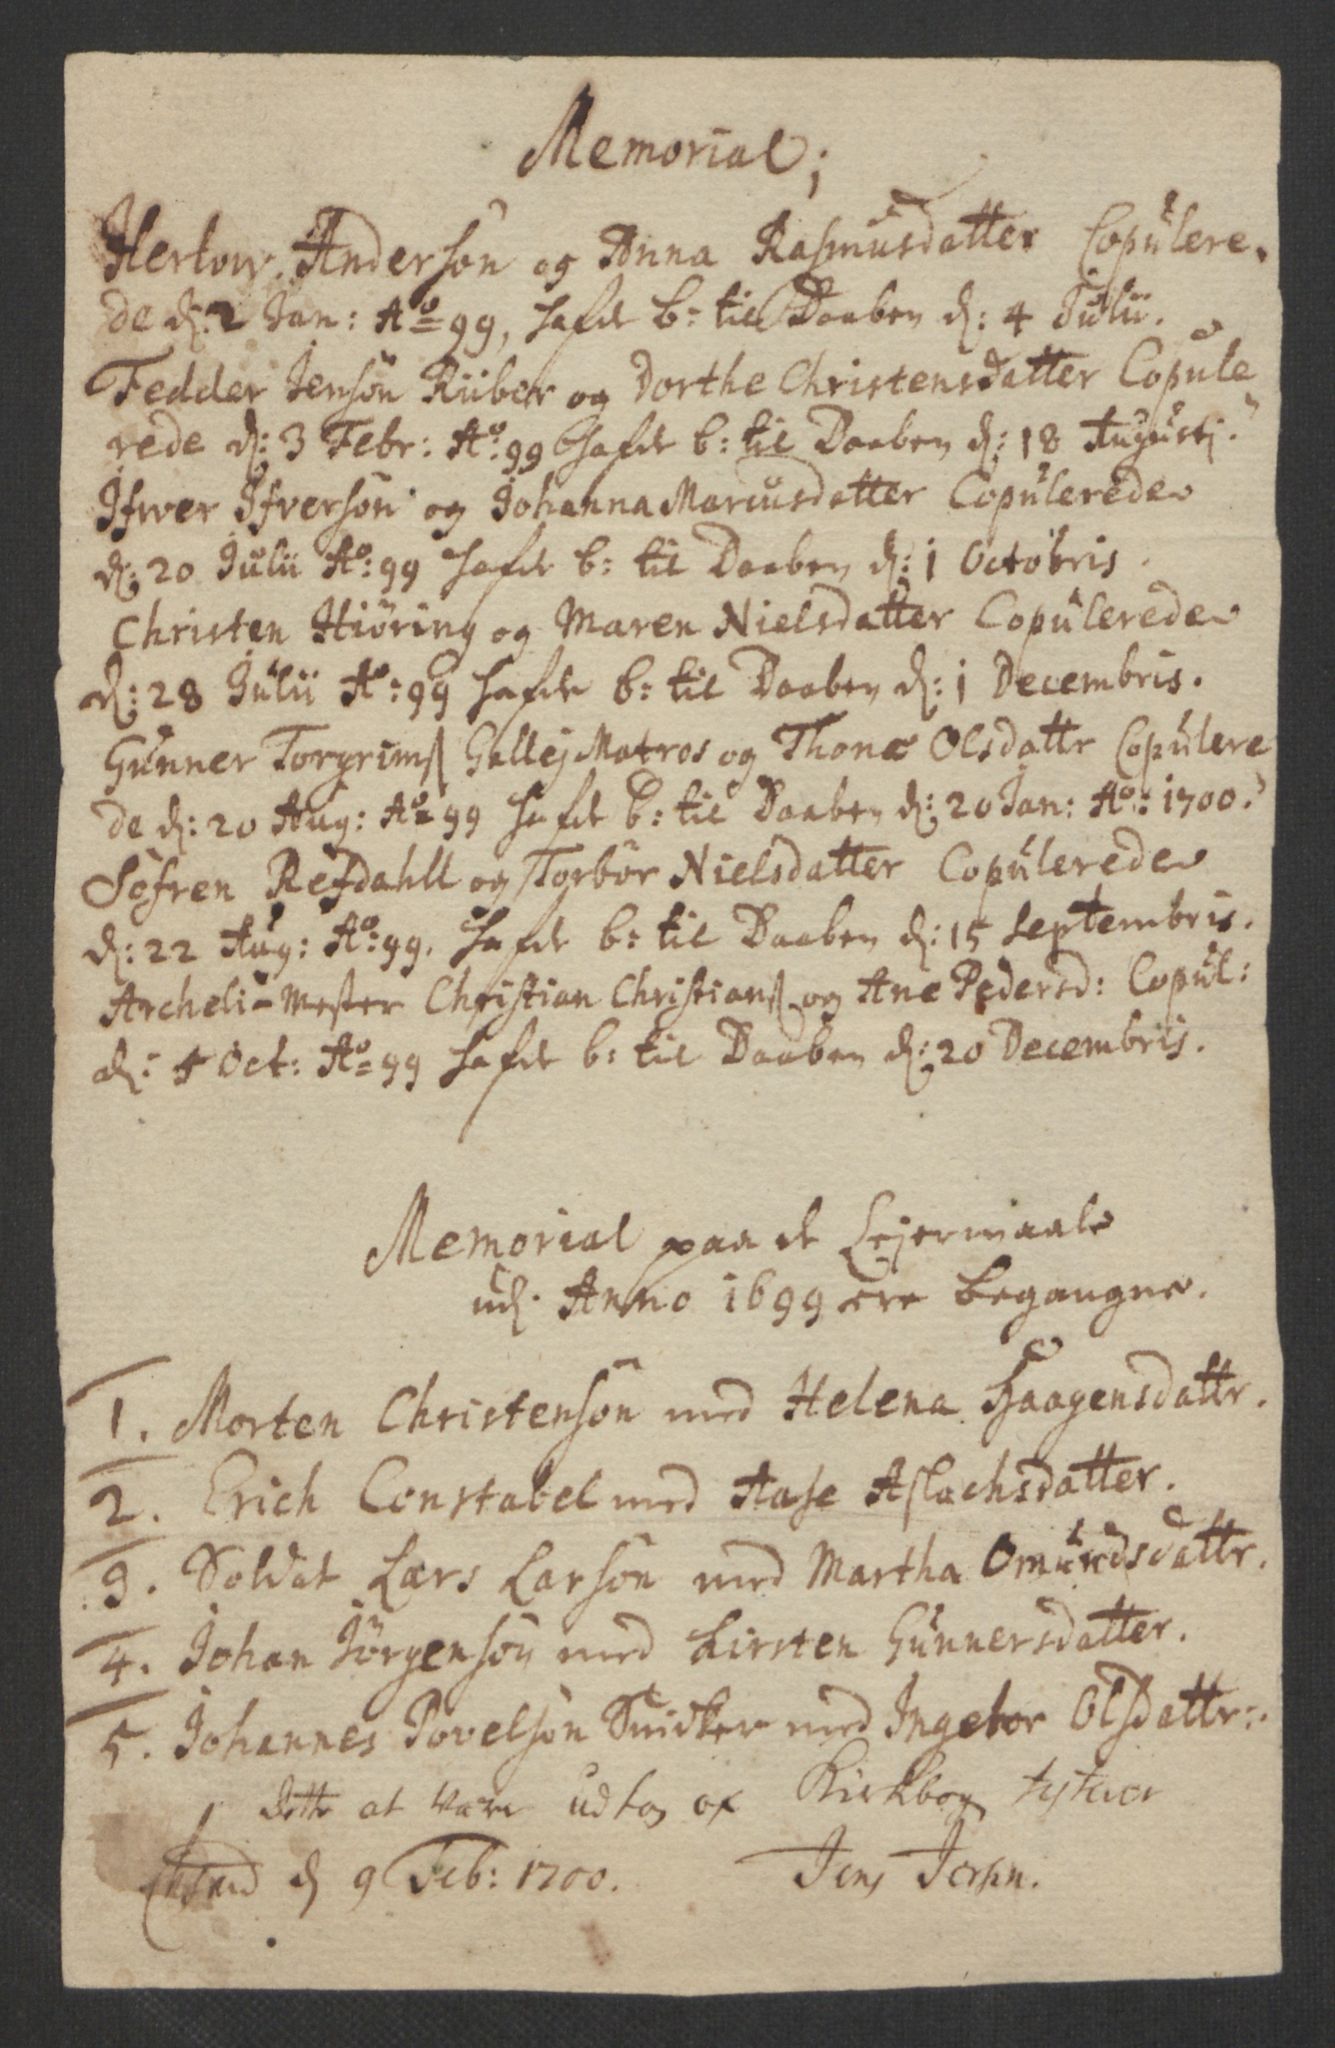 Memorial;
Herlow Anderson og Anna Rasmusdatter Copulere-
de d: 2 Jan: Ao 99, hafde b: til Daaben d: 4 Julii.
Fedder Jenson Riiber og Dorthe Christensdatter Copule
rede d: 3 Febr: Ao: 99 hafde b: til Daaben d: 18 Augusti.
Ifwer Ifverson og Johanna Marcusdatter Copulerede
d: 20 Julii Ao: 99 hafde b: til Daaben d: 1 Octobris.
Christen Hiöring og Maren Nielsdatter Copulerede
d: 28 Julii Ao: 99 hafde b: til Daaben d: 1 Decembris.
Gunner Torgrimß Gallej Matros og Thonæ Olsdattr Copulere
de d: 20 Aug: Ao 99 hafde b: til Daaben d: 20 Jan: Ao: 1700.
Söfren Refdahll og Torbör Nielsdatter Copulerede
d: 22 Aug: Ao: 99. hafde b: til Daaben d: 15 Septembris.
Archeli-Mester Christian Christianß og Ane Pedersd: Copul:
d: 4 Oct: Ao 99 hafde b: til Daaben d: 20 Decembris.
Memorial paa de Lejermaale
ud. Anno 1699 ere begangne.
1. Morten Christenson med Helena Haagensdattr.
2. Erich Constabel med Aase Aslachsdatter.
3. Soldat Lars Larson med Martha Omundsdattr.
4. Johan Jörgenson med Kirsten Gunnersdatter.
5. Johannes Povelson Snidker med Ingebor Olsdattr:
Dette at være udtog af Kirkbog testerer
d 9 Feb: 1700. Jens Jersin.